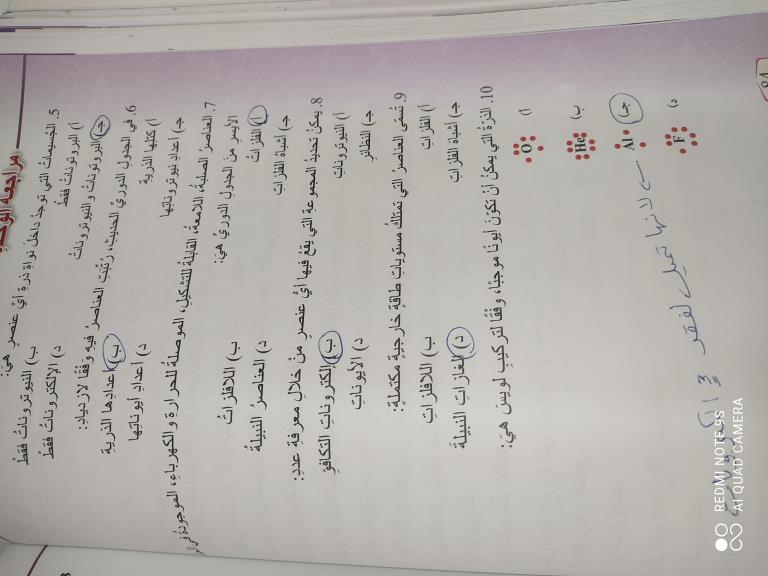 مراجعة الوحدة
5. الجسيمات التي توجدُ داخلَ نواةِ ذرةِ أيِّ عنصرٍ هيَ:
أ) البروتوناتُ فقطْ
ب) النيوتروناتُ فقطْ
جـ) البروتوناتُ والنيوتروناتُ
د) الإلكتروناتُ فقطْ
6. في الجدولِ الدوريِّ الحديثِ، رُتّبَتِ العناصرُ فيهِ وَفْقًا لازديادِ:
أ) كتلِها الذريةِ
ب) أعدادِها الذريةِ
جـ) أعدادِ نيوتروناتِها
د) أعدادِ أيوناتِها
7. العناصرُ الصلبةُ، اللامعةُ، القابلةُ للتشكيلِ، الموصلةُ للحرارةِ والكهرباءِ، الموجودةُ في
الأيسرِ منَ الجدولِ الدوريِّ هيَ:
أ) الفلزاتُ
ب) اللافلزاتُ
جـ) أشباهُ الفلزاتِ
د) العناصرُ النبيلةُ
8. يمكنُ تحديدُ المجموعةِ التي يقعُ فيها أيُّ عنصرٍ منْ خلالِ معرفةِ عددِ:
أ) النيوتروناتِ
ب) إلكتروناتِ التكافؤِ
جـ) النظائرِ
د) الأيوناتِ
9. تُسمّى العناصرُ التي تمتلكُ مستوياتِ طاقةٍ خارجيةٍ مكتملةٍ:
أ) الفلزاتِ
ب) اللافلزاتِ
جـ) أشباهَ الفلزاتِ
د) الغازاتِ النبيلةَ
10. الذرّةُ التي يمكنُ أنْ تكوّنَ أيونًا موجبًا، وفْقًا لتركيبِ لويسَ هيَ:
أ) O
ب) He
جـ) Al
لانها تميل لفقد 3 الكترونات
د) F
84
REDMI NOTE 9S
AI QUAD CAMERA